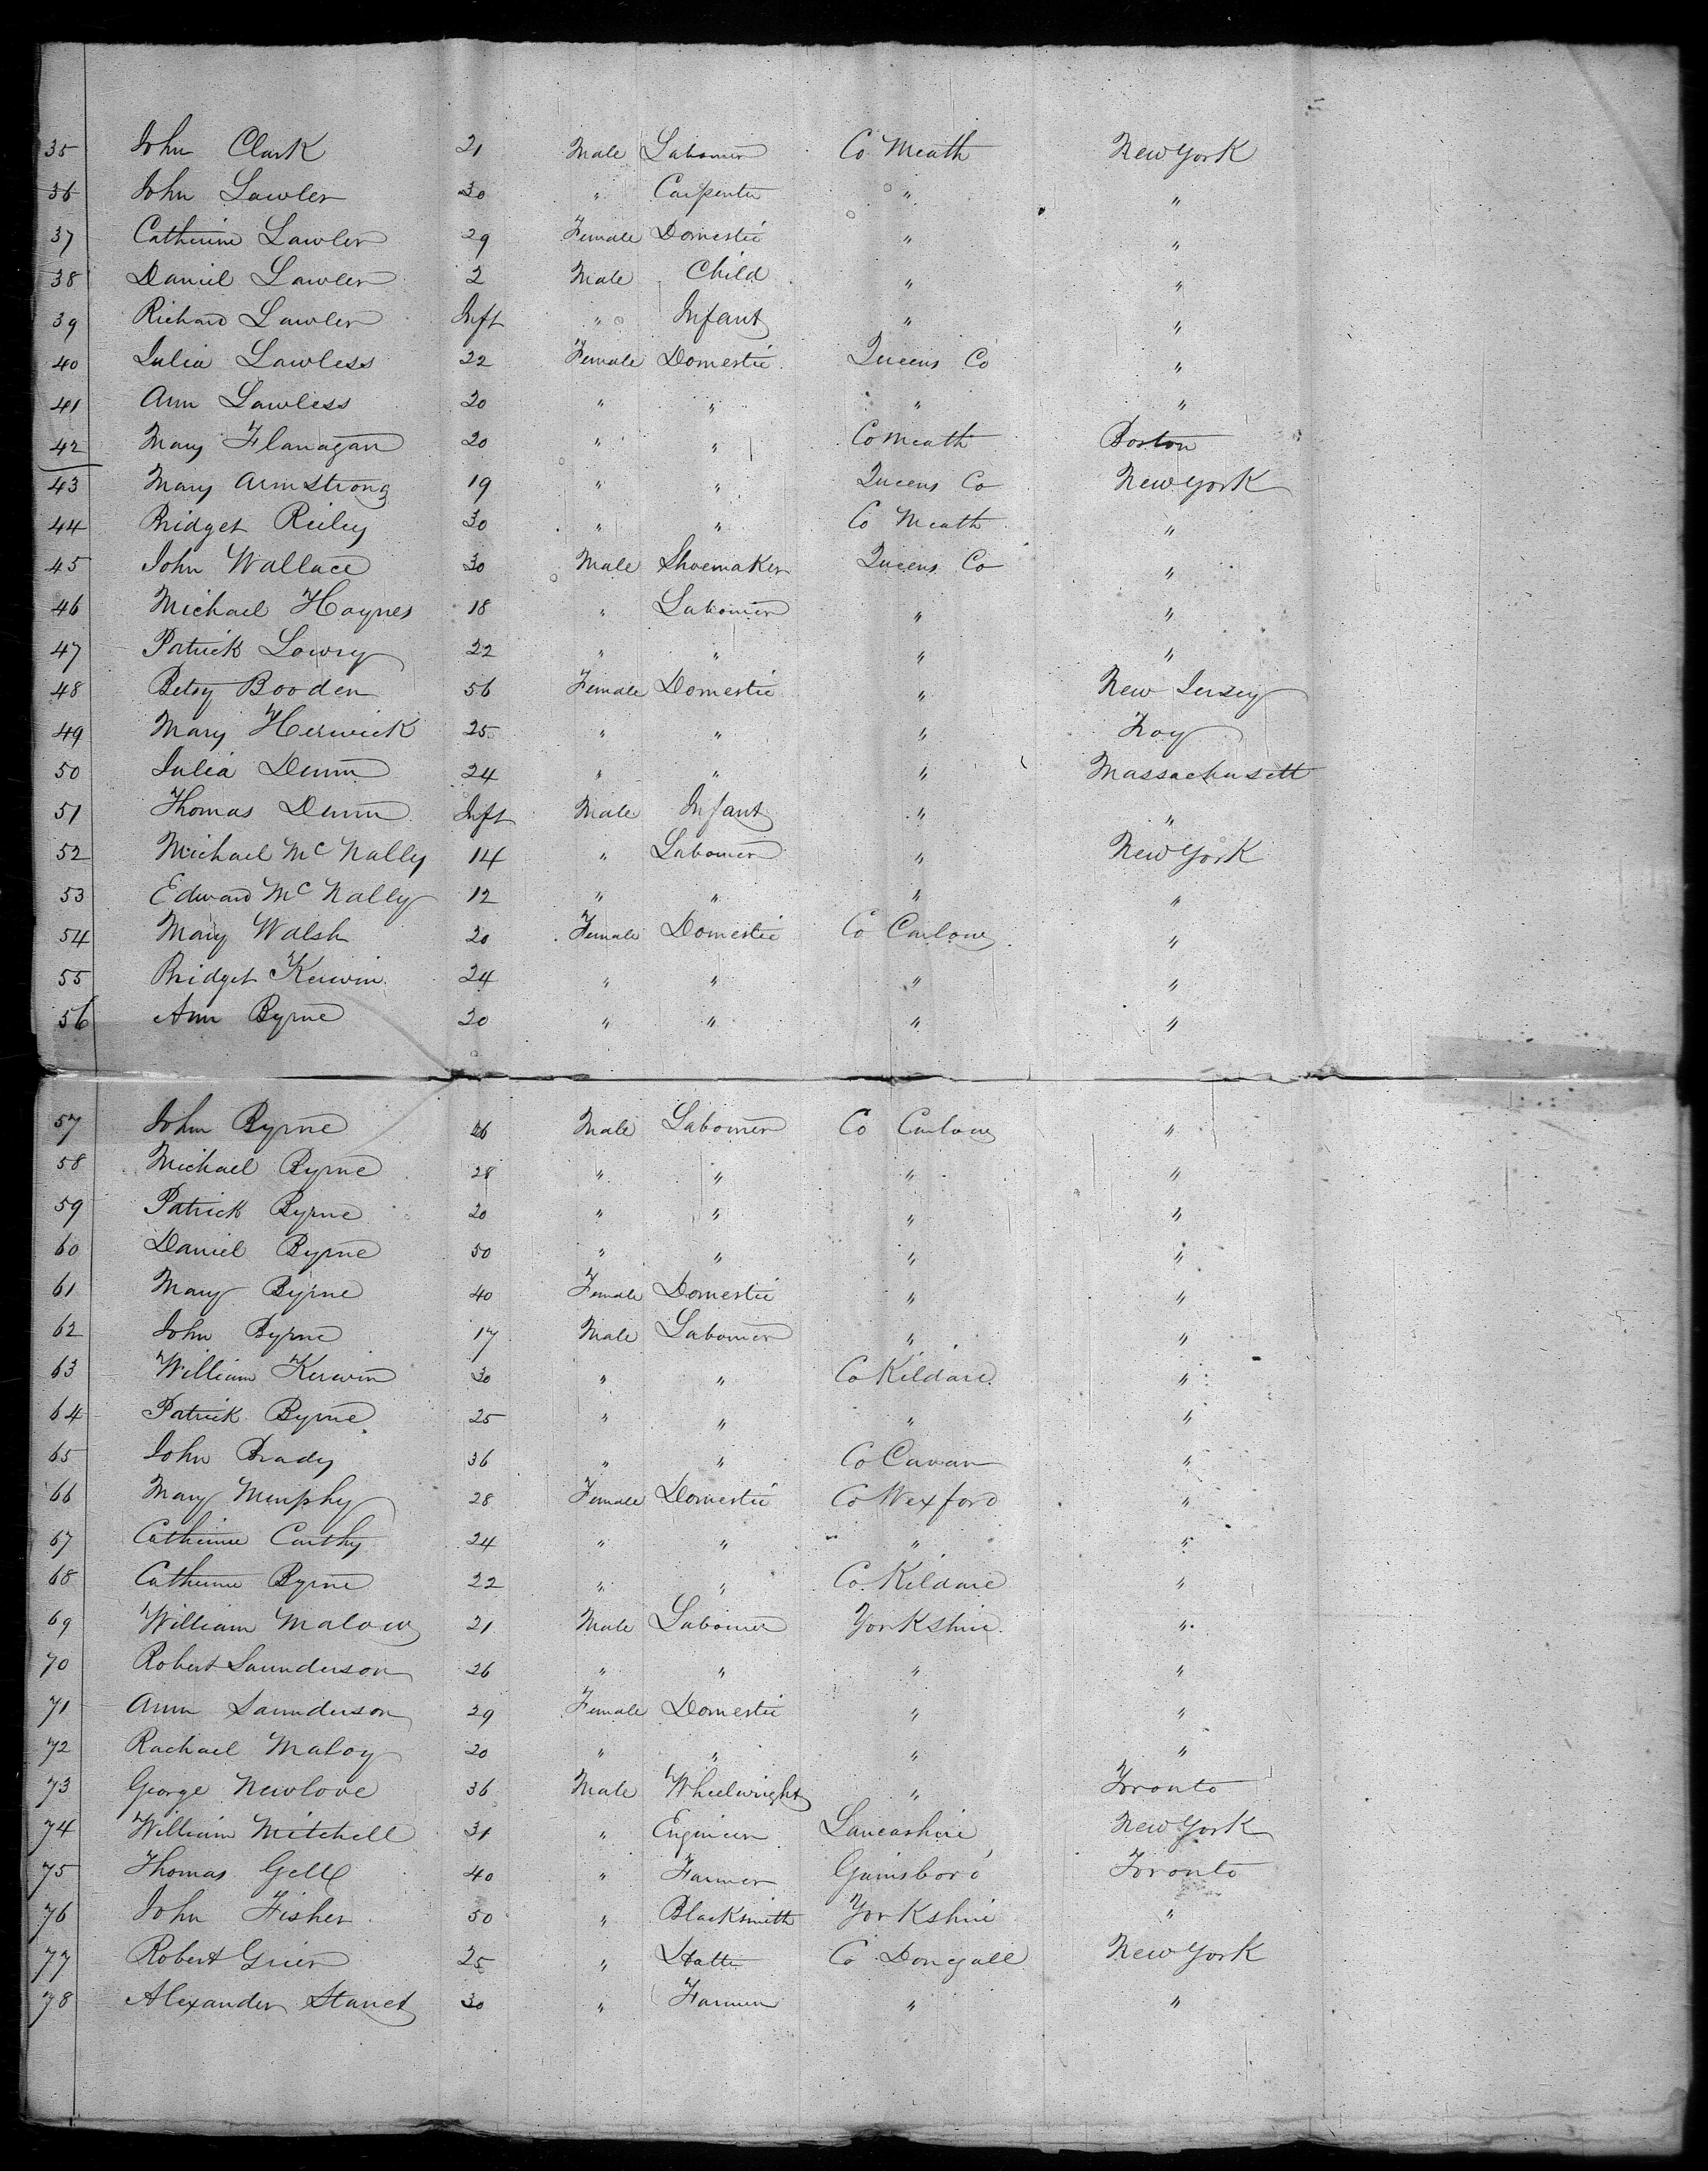 35 John Clark 21 Male Labourer Co Meath New York
36 John Lawler 30 " Carpenter " "
37 Catherine Lawler 29 Female Domestic " "
38 Daniel Lawler 2 Male Child " "
39 Richard Lawler Inft " Infant " "
40 Julia Lawless 22 Female Domestic Queens Co "
41 Ann Lawless 20 " " " "
42 Mary Flanagan 20 " " Co Meath Boston
43 Mary Armstrong 19 " " Queens Co New York
44 Bridget Reiley 30 " " Co Meath "
45 John Wallace 30 Male Shoemaker Queens Co "
46 Michael Haynes 18 " Labourer " "
47 Patrick Lowry 22 " " " "
48 Betsy Booden 56 Female Domestic " New Jersey
49 Mary Herwick 25 " " " Troy
50 Julia Dunn 24 " " " Massachusett
51 Thomas Dunn Inft Male Infant " "
52 Michael McNally 14 " Labourer " New York
53 Edward McNally 12 " " " "
54 Mary Walsh 20 Female Domestic Co Carlow "
55 Bridget Kerwin 24 " " " "
56 Ann Byrne 20 " " " "
57 John Byrne 26 Male Labourer Co Carlow "
58 Michael Byrne 28 " " " "
59 Patrick Byrne 20 " " " "
60 Daniel Byrne 50 " " " "
61 Mary Byrne 40 Female Domestic " "
62 John Byrne 17 Male Labourer " "
63 William Kerwin 30 " " Co Kildare "
64 Patrick Byrne 25 " " " "
65 John Brady 36 " " Co Cavan "
66 Mary Murphy 28 Female Domestic Co Wexford "
67 Catherine Carthy 24 " " " "
68 Catherine Byrne 22 " " Co. Kildare "
69 William Maloy 21 Male Labourer Yorkshire "
70 Robert Saunderson 26 " " " "
71 Ann Saunderson 29 Female Domestic " "
72 Rachael Maloy 20 " " " "
73 George Newlove 36 Male Wheelwright " Toronto
74 William Mitchell 31 " Engineer Lancashire New York
75 Thomas Gell 40 " Farmer Gainsboro Toronto
76 John Fisher 50 " Blacksmith Yorkshire "
77 Robert Grier 25 " Co Donegall New York
78 Alexander 30 " Farmer " "